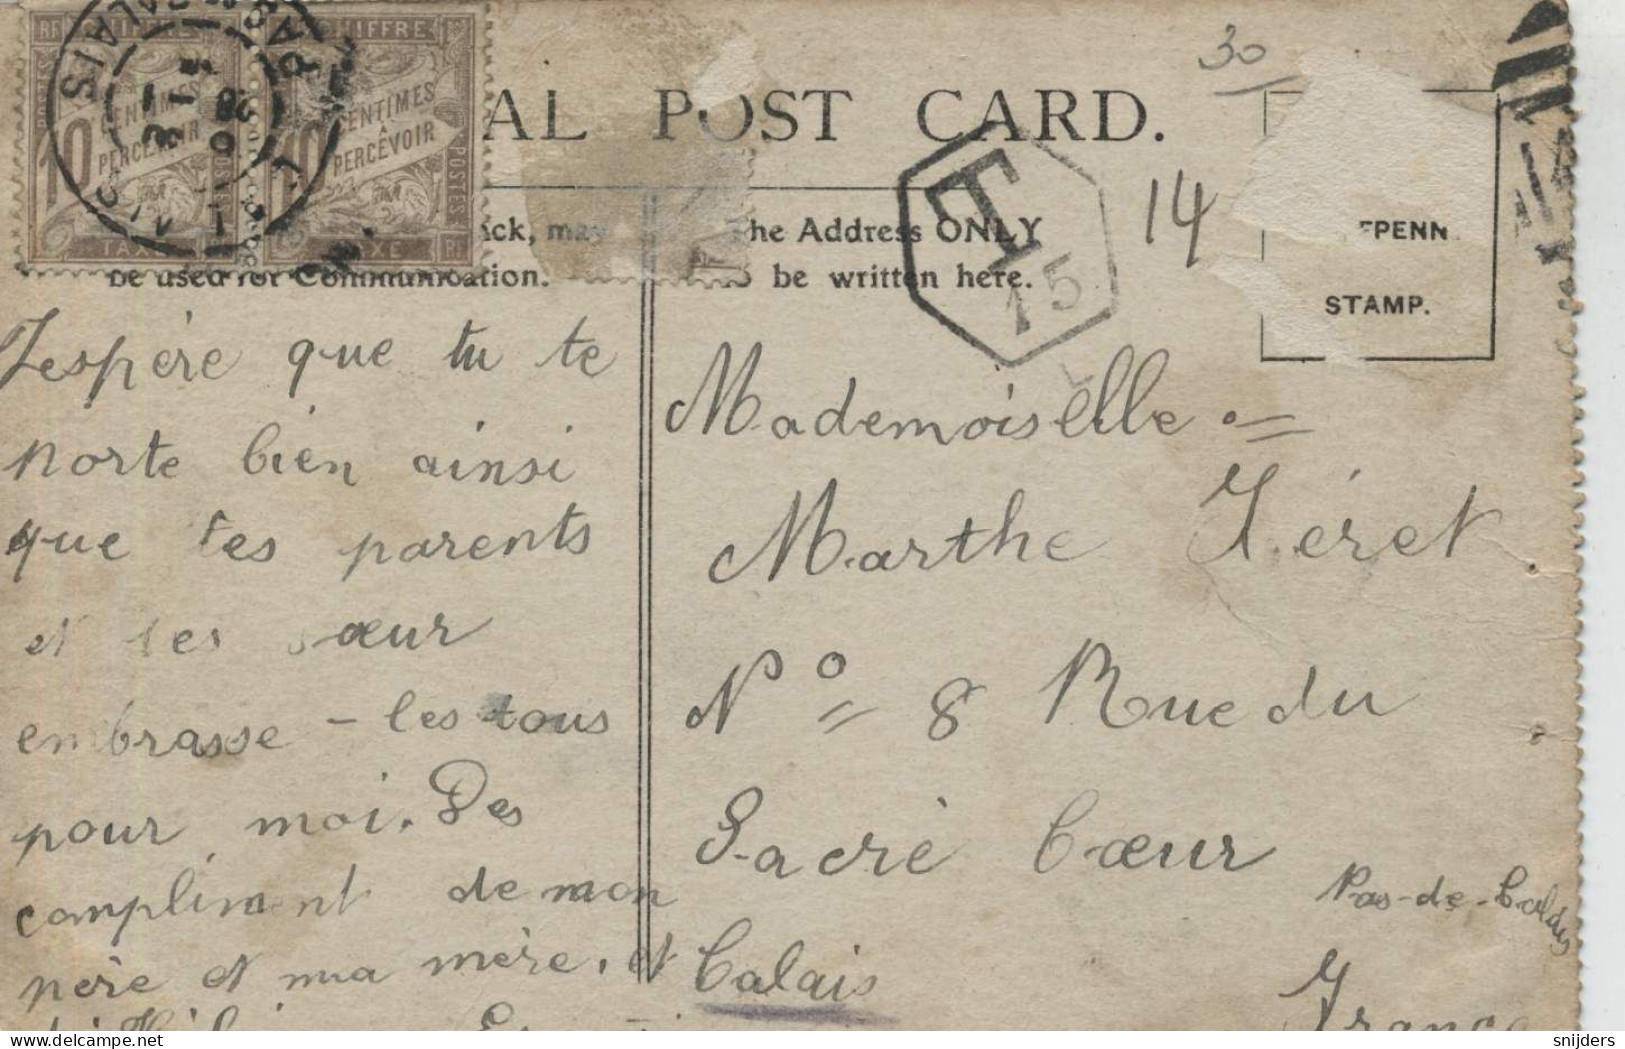 AL POST CARD.
30
14
RF CHIFFRE
10 CENTIMES
À
PERCEVOIR
POSTES
TAXE
CHIFFRE
10 CENTIMES
À
PERCEVOIR
POSTES
TAXE RF
CALAIS
T
15
L
ick, may
be used for Communication.
he Address ONLY
be written here.
FPENN
STAMP.
J'espère que tu te
porte bien ainsi
que tes parents
et tes sœur
embrasse - les tous
pour moi. Des
compliment de mon
père et ma mère. et
Mademoiselle
Marthe Féret
No 8 Rue du
Sacré Cœur
Calais
Pas-de-Calais
France
www.delcampe.net
snijders